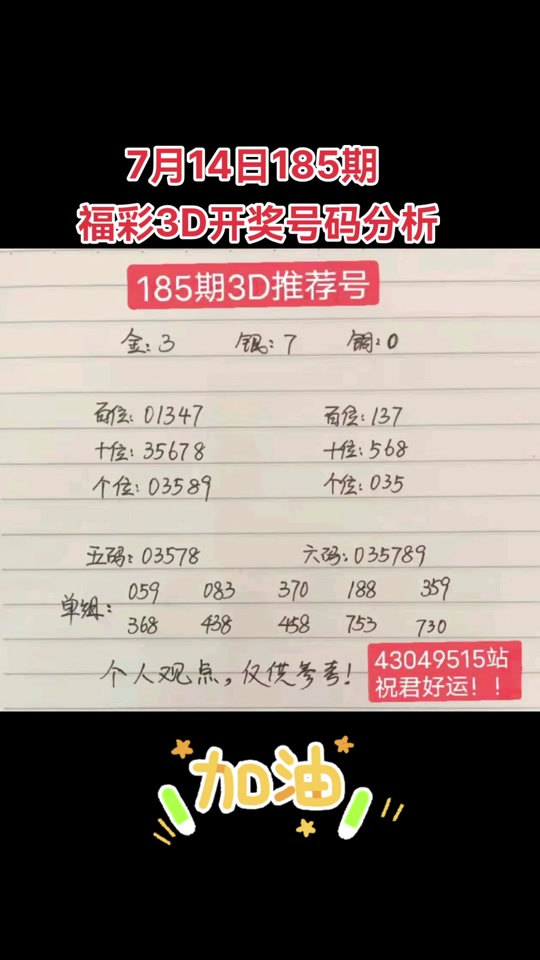 7月14日185期
福彩3D开奖号码分析
185期3D推荐号
金:3 银:7 铜:0
百位:01347 百位:137
十位:35678 十位:568
个位:03589 个位:035
五码:03578 六码:035789
单组: 059 083 370 188 359
368 438 458 753 730
个人观点,仅供参考!
43049515站
祝君好运!!
加油